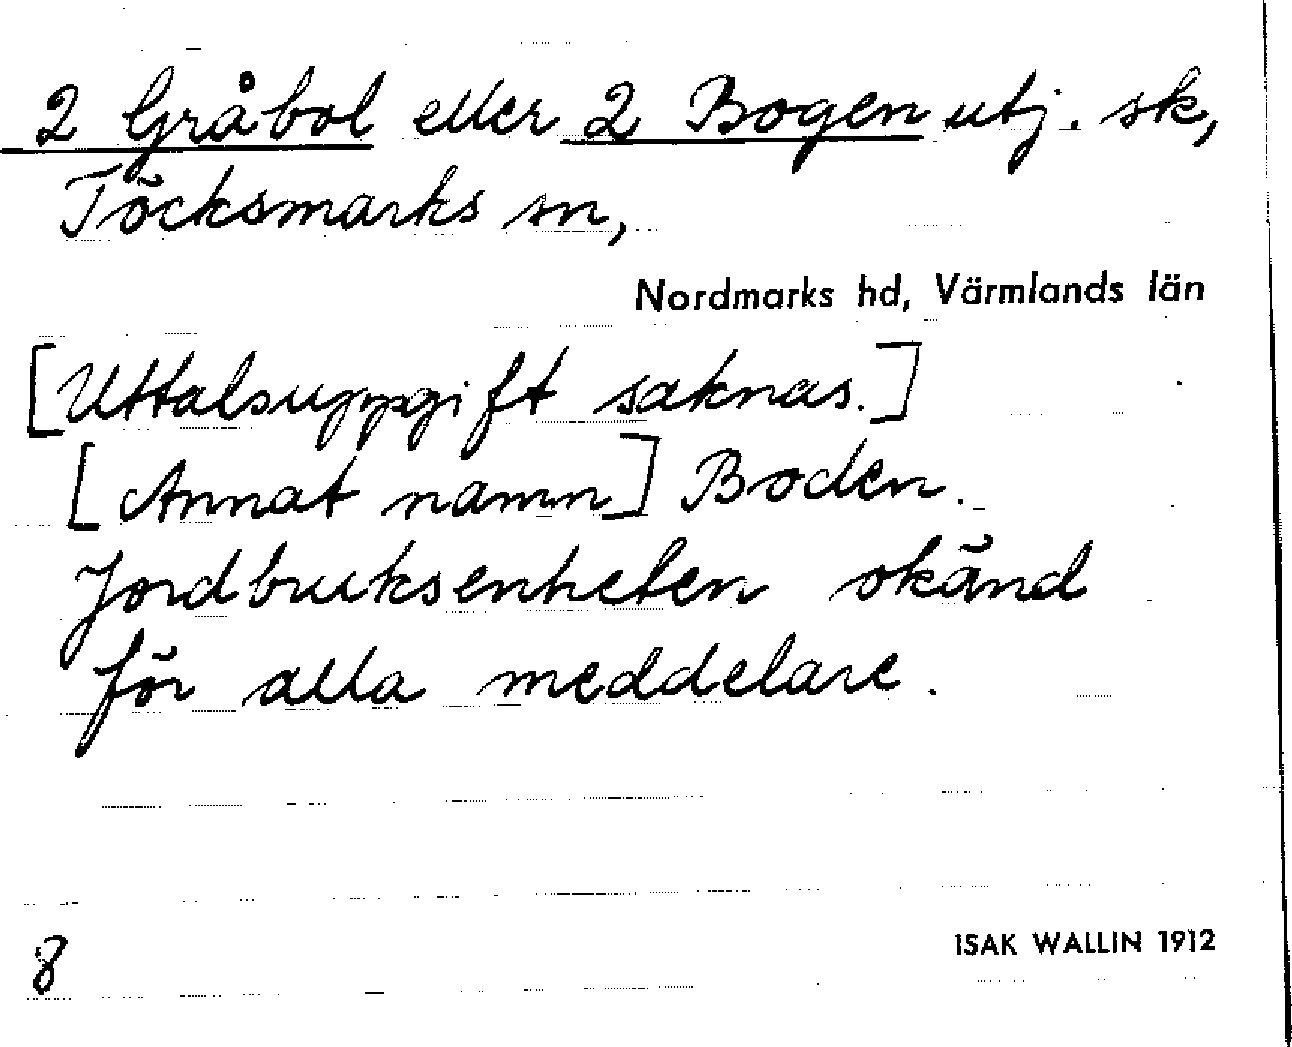 2 Gråbol eller 2 Bogen utj. sk,
Töcksmarks sn,
Nordmarks hd, Värmlands län
[Uttalsuppgift saknas.]
[Annat namn] Boden.
Jordbruksenheten okänd
för alla meddelare.
8
ISAK WALLIN 1912